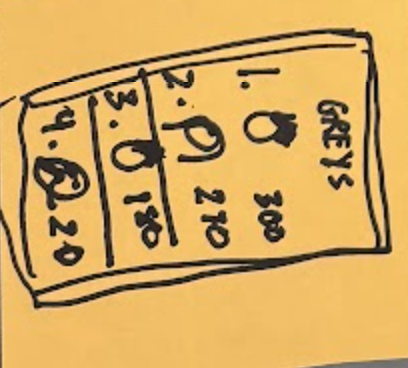 GREYS
1. 300
2. 270
3. 180
4. 20